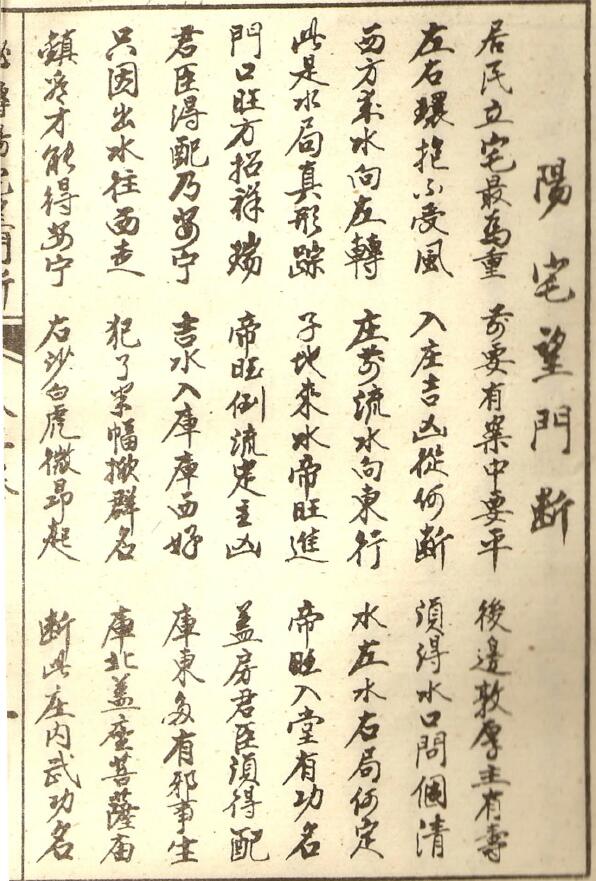 陽宅望門断
居民立宅最為重 前要有案中要平 後邊敦厚主有壽
左右環抱不受風 入庄吉凶從何断 須得水口問個清
西方來水向左轉 庄前流水向東行 水左水右局何定
此是水局真形踪 子地來水帝旺進 帝旺入堂有功名
門口旺方招祥瑞 帝旺倒流定主凶 盖房君臣須得配
君臣得配乃安宁 吉水入庫庫西好 庫東多有邪事生
只因出水往西走 犯了 群名 庫北盖座菩薩庙
鎮 才能得安宁 右沙白虎微昂起 断此庄内武功名